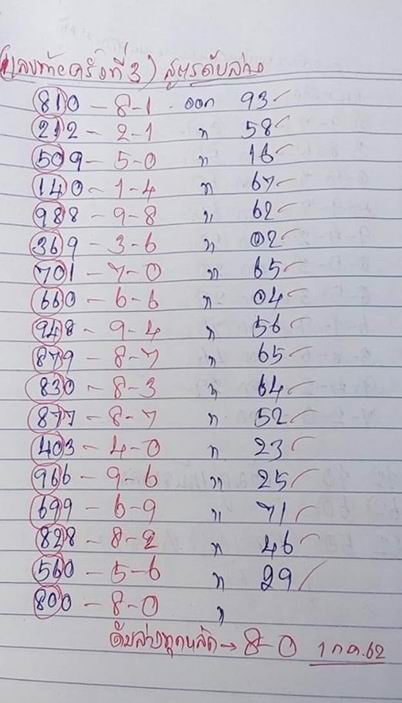 (เลขท้ายครั้งที่ 3) สูตรดับล่าง
810 - 8-1 ออก 93
212 - 2-1 " 58
509 - 5-0 " 16
140 - 1-4 " 67
988 - 9-8 " 62
369 - 3-6 " 02
701 - 7-0 " 65
660 - 6-6 " 04
948 - 9-4 " 56
879 - 8-7 " 65
830 - 8-3 " 64
877 - 8-7 " 52
403 - 4-0 " 23
966 - 9-6 " 25
699 - 6-9 " 71
828 - 8-2 " 46
560 - 5-6 " 29
800 - 8-0 "
ดับล่างทุกหลัก → 8-0 1 กค.62